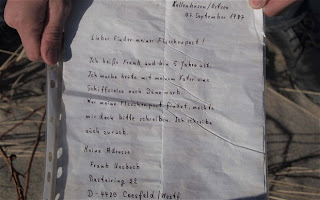 Lieber Finder meiner Flaschenpost!
Ich heiße Frank und bin 5 Jahre alt.
Ich mache heute mit meinem Vater eine
Schiffsreise nach Dänemark.
Wer meine Flaschenpost findet, möchte
mir doch bitte schreiben. Ich schreibe
auch zurück.
Meine Adresse
Frank
22
D-4420 Coesfeld /Westf